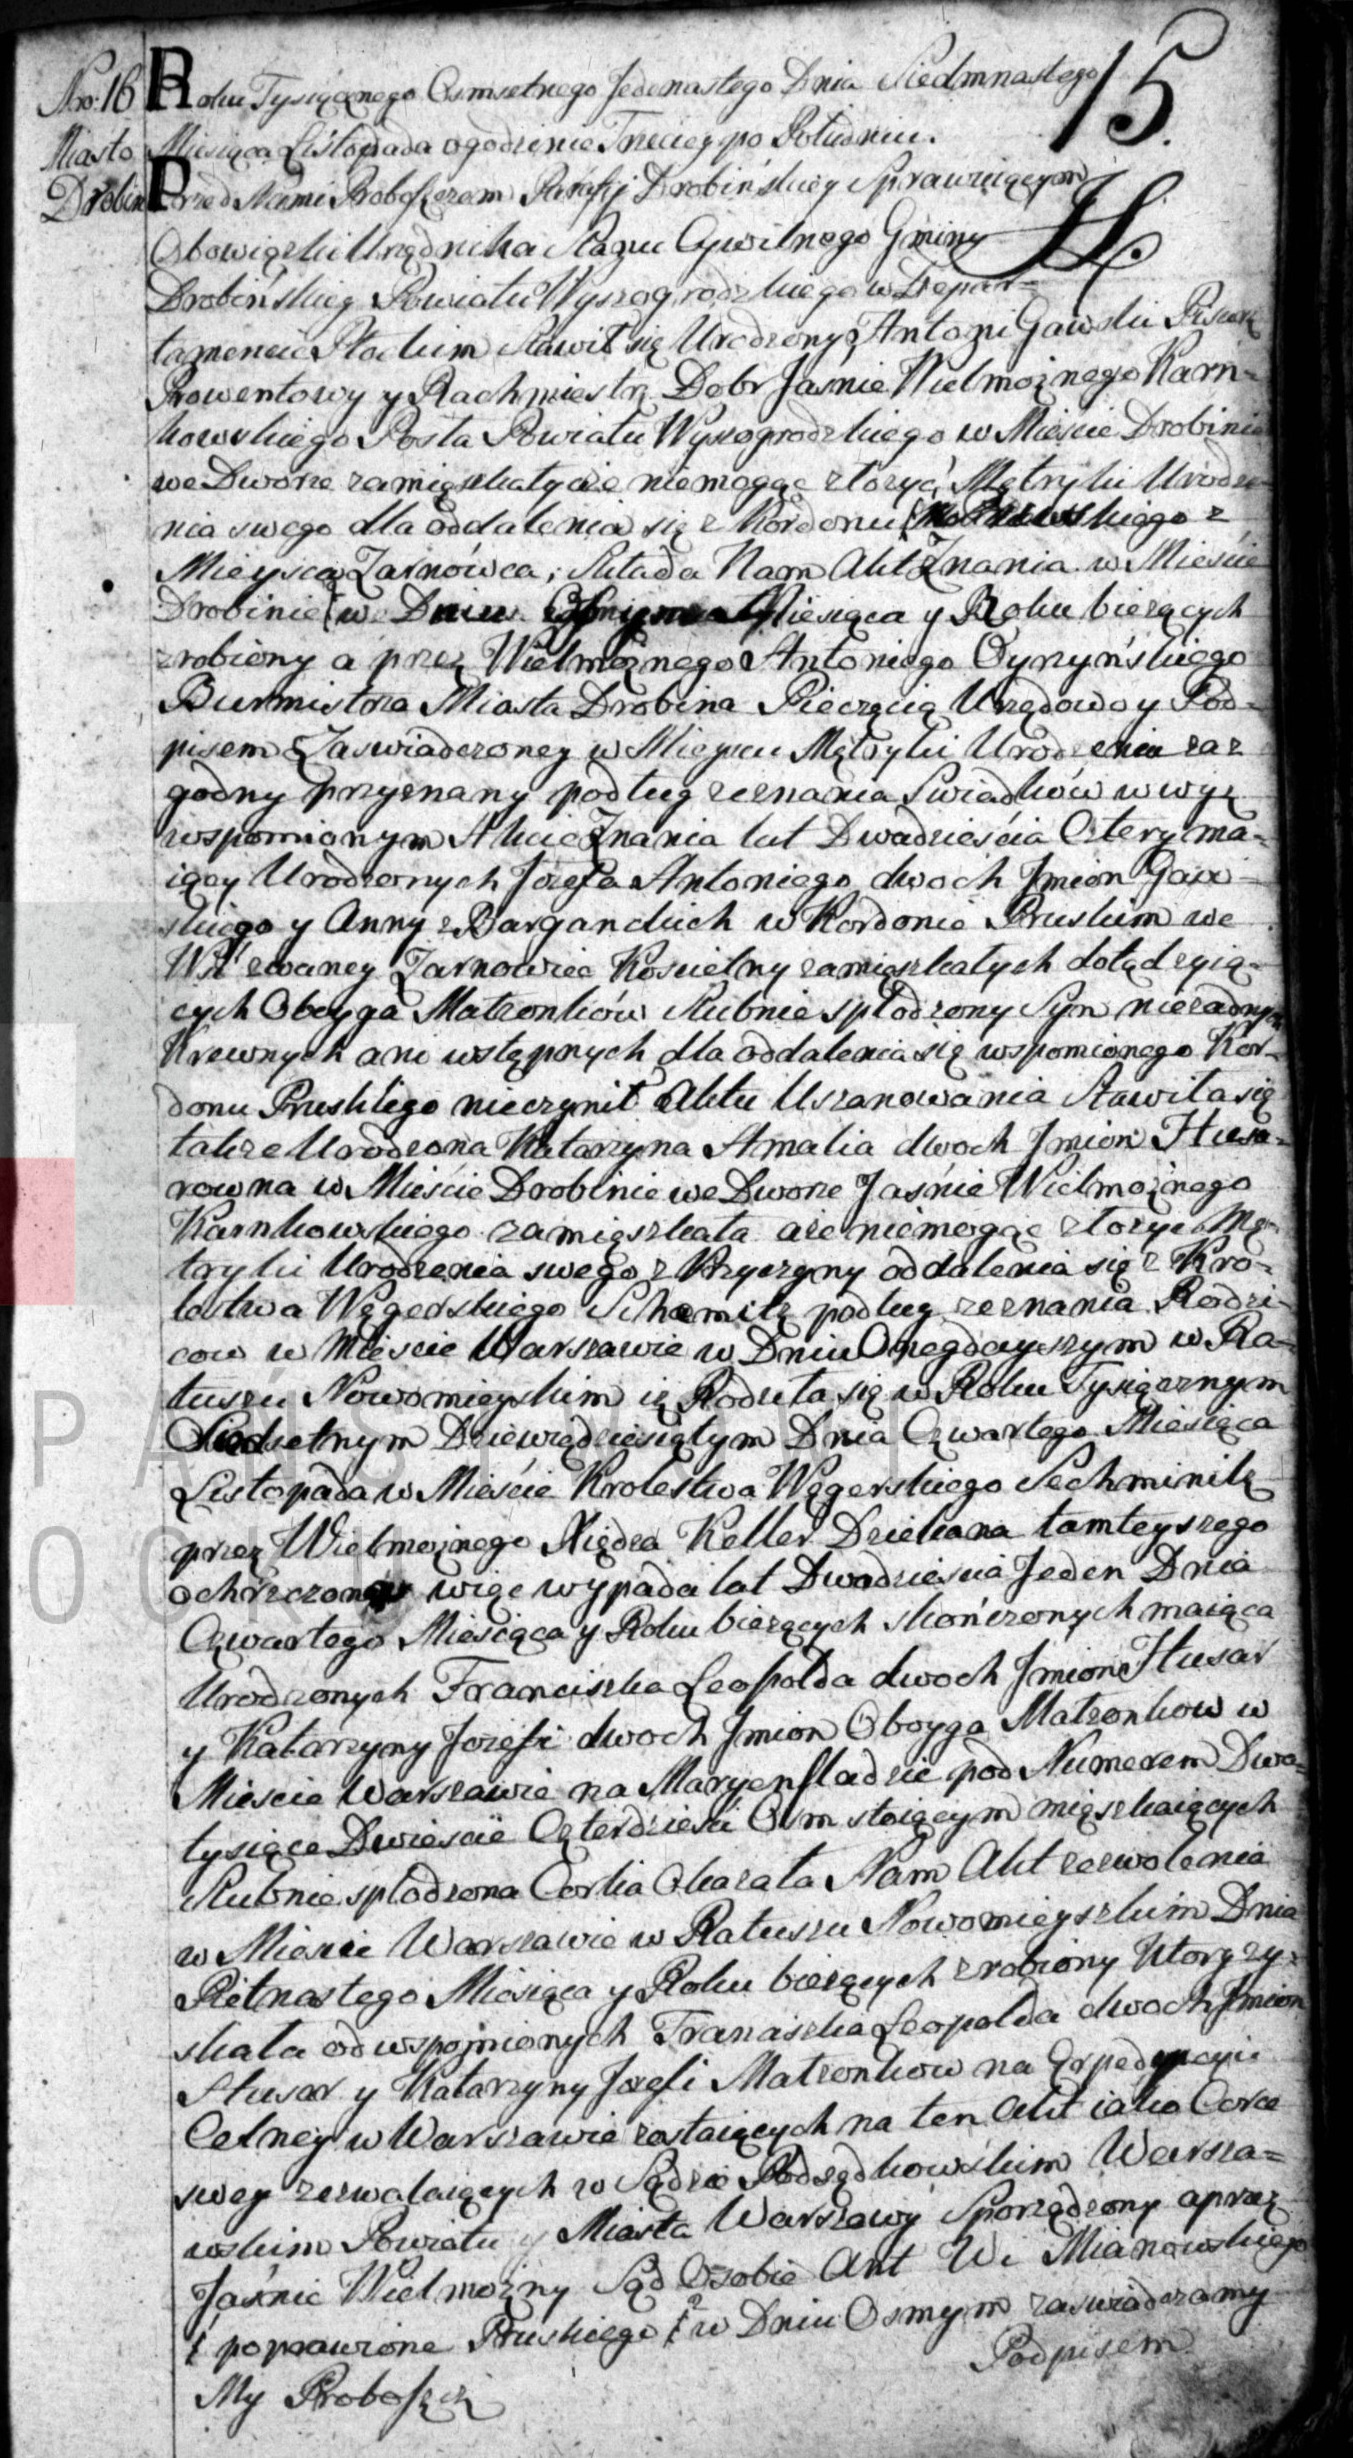 15.
Nro: 16 Roku Tysiącznego Osmsetnego Jedenastego Dnia Siedmnastego
Miasto Miesiąca Listopada o godzinie Trzeciey po Południu.
Drobin Przed Nami Proboszczem Parafij Drobińskiey Sprawuiącym
Obowiązki Urzędnika Stanu Cywilnego Gminy
Drobińskiey Powiatu Wyszogrodzkiego w Depar-
tamencie Płockim stawił się Urodzony Antoni Gawski Pisarz
Prowentowy y Rachmistrz Dobr Jaśnie Wielmożnego Karn-
kowskiego Posła Powiatu Wyszogrodzkiego w Mieście Drobinie
we Dworze zamięszkały ale niemogąc złożyć Metryki Urodze-
nia swego dla oddalenia się z Kordonu z
Mieysca Zarnówca, Składa Nam Akt Znania w Mieście
Drobinie w Dniu Miesiąca y Roku bieżących
zrobiony a przez Wielmożnego Antoniego Cyrzyńskiego
Burmistrza Miasta Drobina Pieczęcią Urzędową y Pod-
pisem Zaswiadczoney w Mieyscu Metryki Urodzenia zaz
godny przyznany podług zeznania Swiadków w wyż
wspomnionym Akcie Znania lat Dwadzieścia Cztery ma-
iący Urodzonych Józefa Antoniego dwoch Jmion Gaw-
skiego y Anny z Barganckich w Kordonie Pruskim we
Wsi zwaney Zarnowiec Kościelny zamięszkałych dotąd żyią-
cych Oboyga Małżonków slubnie spłodzony Syn nieżadnych
Krewnych ani wstępnych dla oddalenia się wspomionego Kor-
donu Pruskiego nieczynił Aktu Uszanowania Stawiła się
także Urodzona Katarzyna Amalia dwoch Jmion Husa-
rowna w Mieście Drobinie we Dworze Jaśnie Wielmożnego
Karnkowskiego zamięszkała ale niemogąc złożyć Me-
tryki Urodzenia swego z Przyczyny oddalenia się z Kro-
lestwa Węgerskiego Schemitz podług zeznania Rodzi-
cow w Mieście Warszawie w Dniu Onegdayszym w Ra-
tuszu Nowomieyskim iż Rodziła się w Roku Tysiącznym
Siedmsetnym Dziewiędziesiątym Dnia Czwartego Miesiąca
Listopada w Mieście Krolestwa Węgerskiego Schminitz
przez Wielmożnego Xiędza Keller Dziekana tamteyszego
ochrzczona więc wypada lat Dwadzieścia Jeden Dnia
Czwartego Miesiąca y Roku bieżących skończonych maiąca
Urodzonych Franciszka Leopolda dwoch Jmion Husar
y Katarzyny Jozefi dwoch Jmion Oboyga Małżonkow w
Mieście Warszawie na Maryensztadzie pod Numerem Dwa-
tysiące Dwieście Czterdzieści Osm stoiącym mięszkaiących
slubnie spłodzona Corka Okazała Nam Akt zezwolenia
w Mieście Warszawie w Ratuszu Nowomieyskim Dnia
Piętnastego Miesiąca y Roku bieżących zrobiony Uzyzy-
skała od wspomnionych Franciszka Leopolda dwoch Jmion
Husar y Katarzyny Jozefi Małżonkow na Expedycyi
Celney w Warszawie zostaiących na ten Akt iako Corce
swey zezwalaiących w Sądzie Podsędkowskim Warsza-
wskim Powiatu y Miasta Warszawy Sporządzony a przez
Jaśnie Wielmożny Sąd Osobie Ant W. Mianowskiego
poprawione Pruskiego w Dniu Osmym zaswiadczamy
Podpisem
My Proboszcz
PAŃSTW
OCK